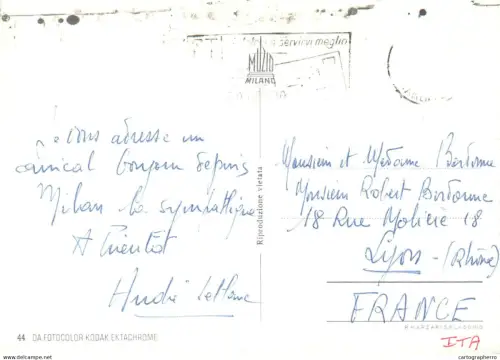 servirvi meglio
MILANO
Je vous adresse un
amical bonjour depuis
Milan la sympathique
A bientôt
André
Monsieur et Madame Bordonne
Monsieur Robert Bordonne
18 Rue Molière 18
Lyon - (Rhône)
FRANCE
Riproduzione vietata
44 DA FOTOCOLOR KODAK EKTACHROME
ITA
https://www.delcampe.net
cartographerro